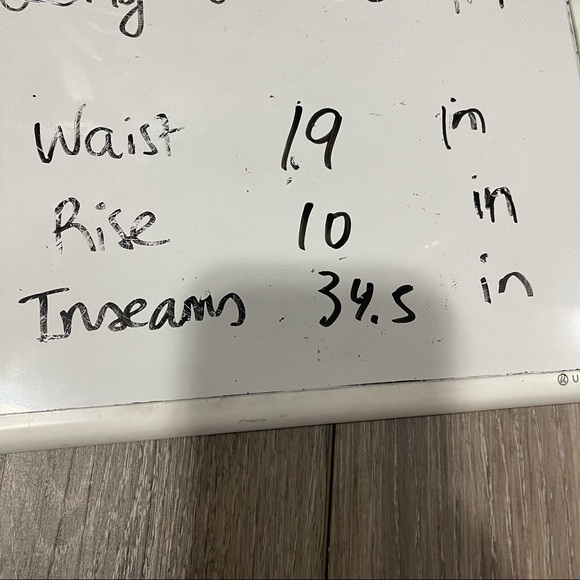 Waist 19 in
Rise 10 in
Inseams 34.5 in